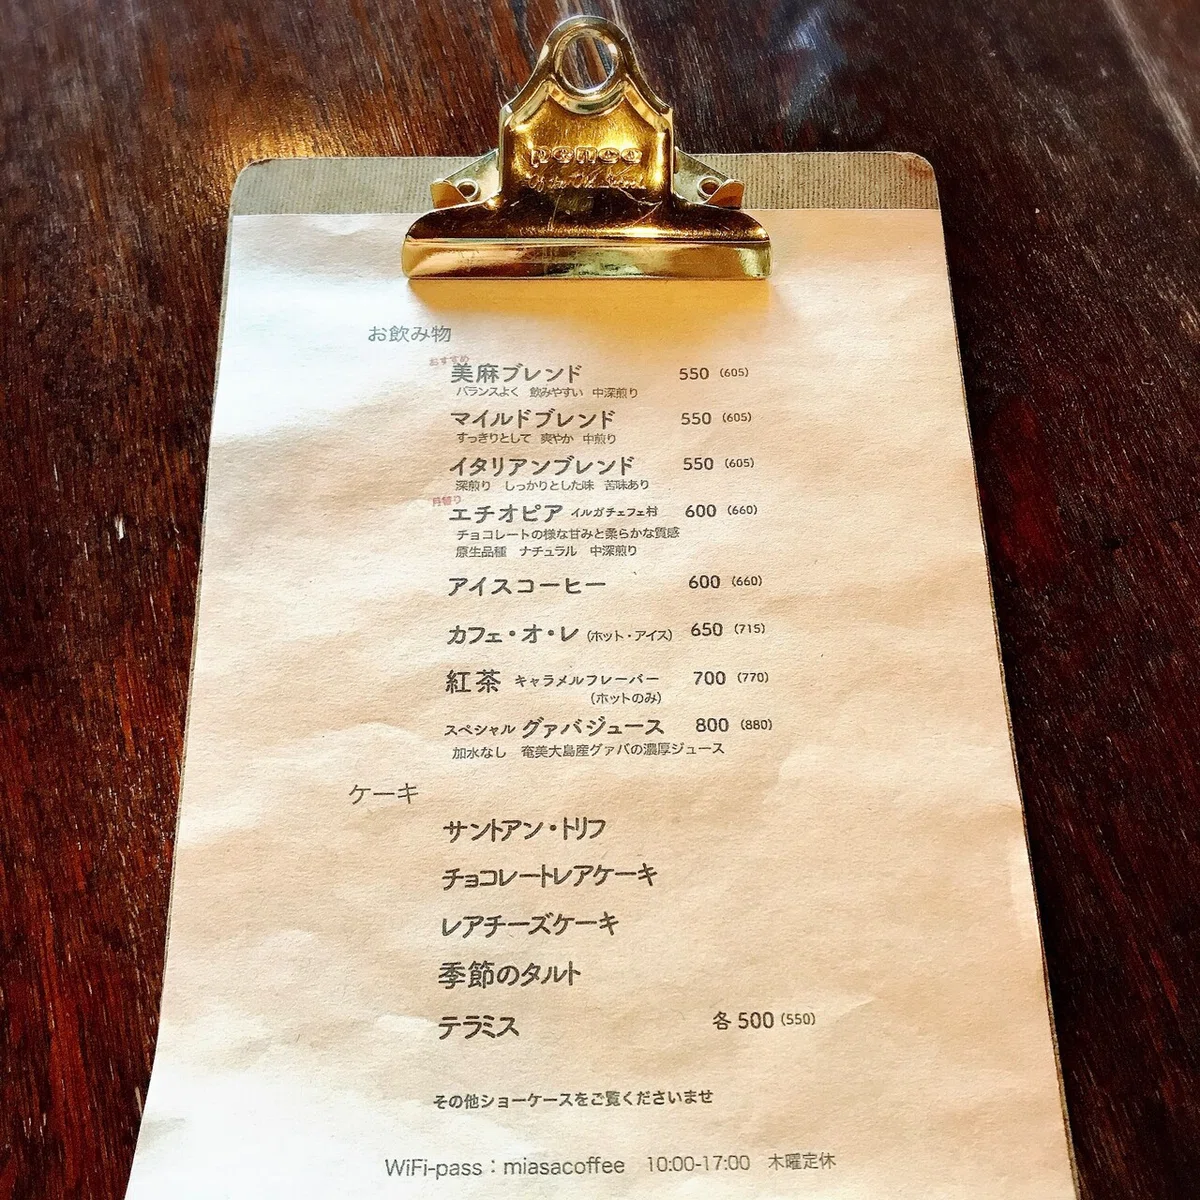 penco
お飲み物
おすすめ
美麻ブレンド 550 (605)
バランスよく 飲みやすい 中深煎り
マイルドブレンド 550 (605)
すっきりとして 爽やか 中煎り
イタリアンブレンド 550 (605)
深煎り しっかりとした味 苦味あり
月替り
エチオピア イルガチェフェ村 600 (660)
チョコレートの様な甘みと柔らかな質感
原生品種 ナチュラル 中深煎り
アイスコーヒー 600 (660)
カフェ・オ・レ (ホット・アイス) 650 (715)
紅茶 キャラメルフレーバー 700 (770)
(ホットのみ)
スペシャル グァバジュース 800 (880)
加水なし 奄美大島産グァバの濃厚ジュース
ケーキ
サントアン・トリフ
チョコレートレアケーキ
レアチーズケーキ
季節のタルト
テラミス 各 500 (550)
その他ショーケースをご覧くださいませ
WiFi-pass：miasacoffee 10:00-17:00 木曜定休